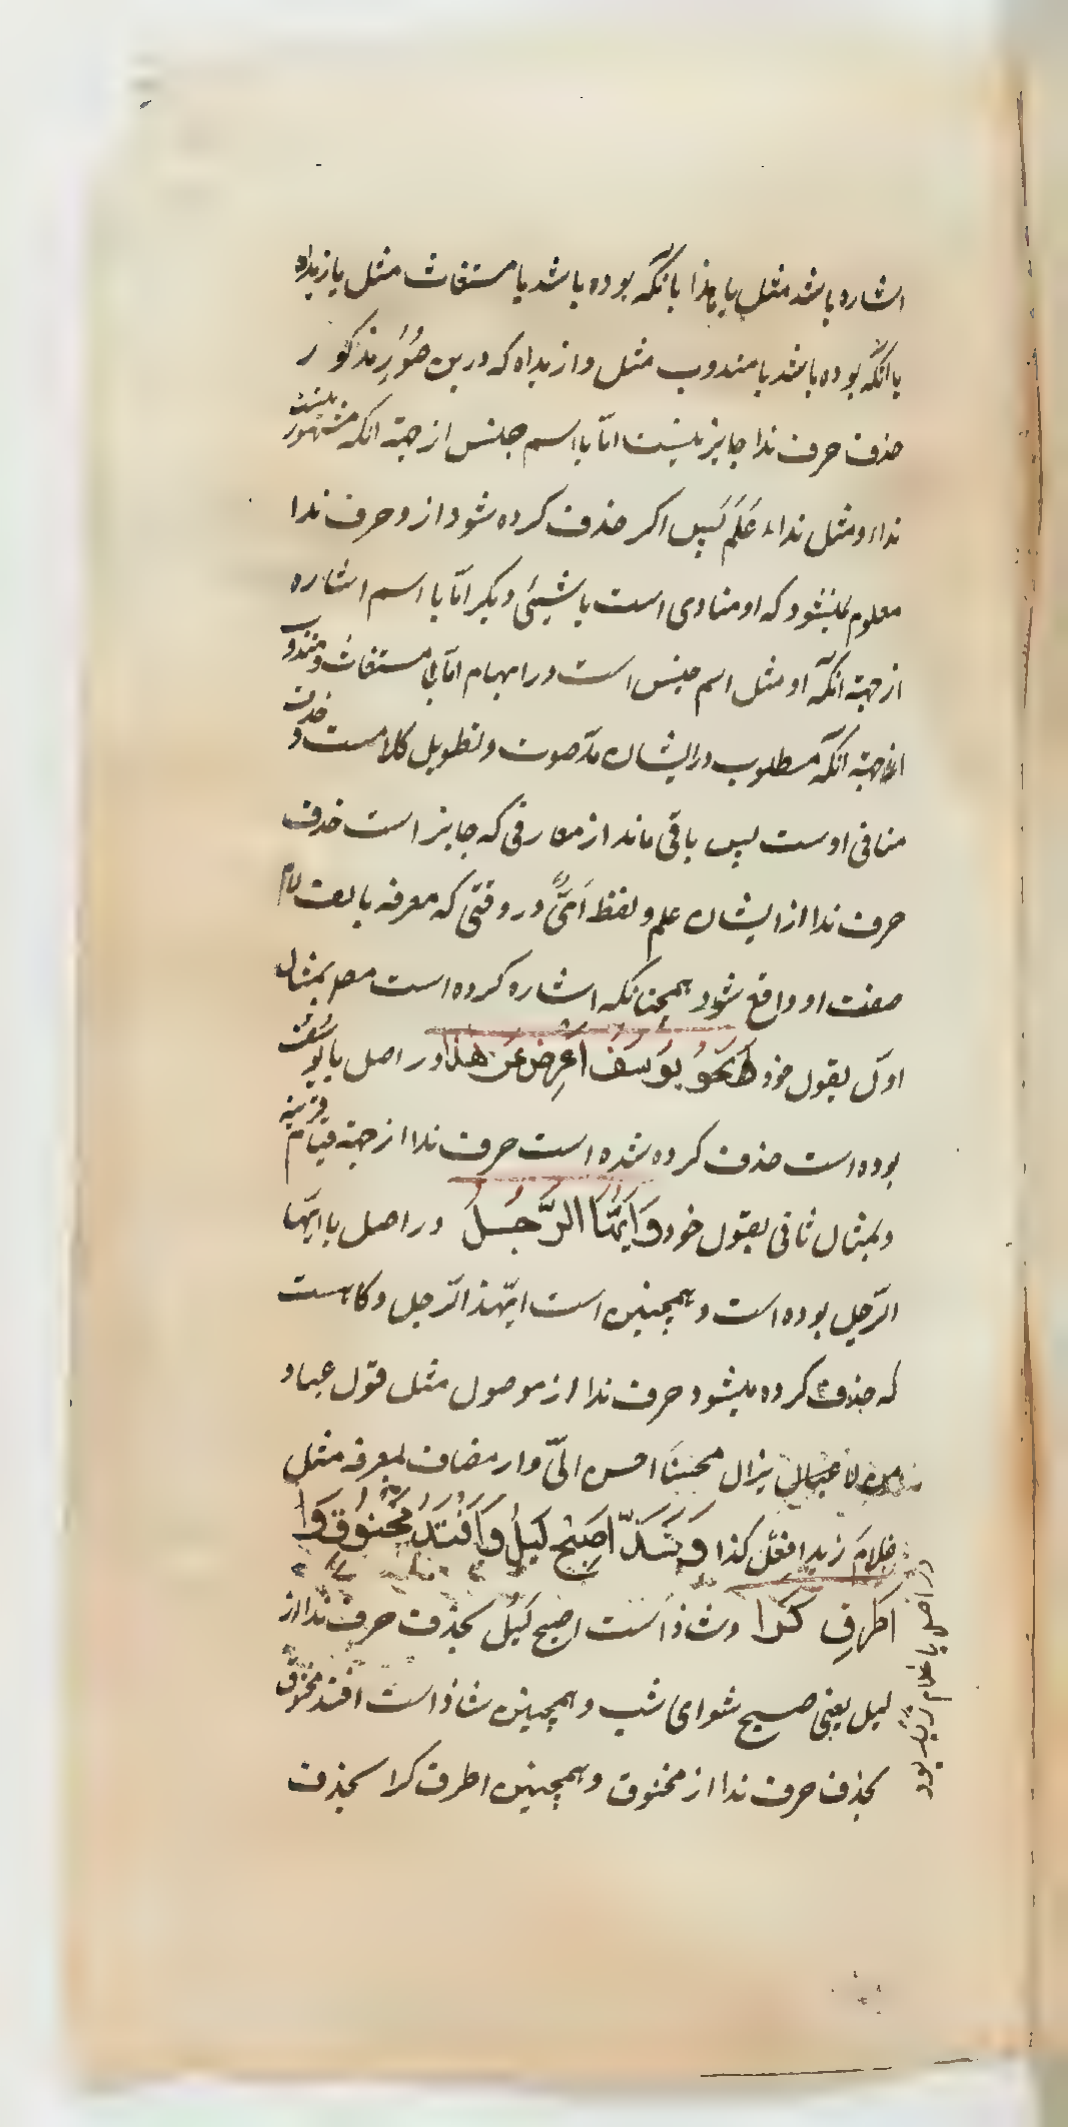 اشاره باشد مثل یا هذا یا آنکه بوده باشد یا مستغاث مثل یا زیداه
یا آنکه بوده باشد یا مندوب مثل وا زیداه که درین صُوَرِ مذکور
حذف حرف ندا جایز نیست امّا با اسم جنس از جهته آنکه مشهور نیست
نداء و مثل نداء عَلَم پس اگر حذف کرده شود از و حرف ندا
معلوم نمیشود که او منادی است یا شیئی دیگر امّا با اسم اشاره
از جهته آنکه او مثل اسم جنس است در ابهام امّا بی مستغاث و مندوب
از جهته آنکه مطلوب در ایشان مدّ صوت و تطویل کلامست و حذف
منافی اوست پس باقی ماند از معارفی که جایز است حذف
حرف ندا از ایشان علم و لفظ اَیّ در وقتی که معرفه بالف لام
صفت او واقع شود همچنانکه اشاره کرده است مصر بمثال
اوّل بقول خود نَحْوُ یُوسُفُ اَعْرِضْ عَنْ هذا در اصل یا یوسُفُ
بوده است حذف کرده شده است حرف ندا از جهته قیام قرینه
و بمثال ثانی بقول خود وَ اَیُّهَا الرَّجُلُ در اصل یا ایّها
الرّجل بوده است و همچنین است ایّهذا الرّجل و کاهست
که حذف کرده میشود حرف ندا از موصول مثل قول عباد
من لا یزال محسنًا احسن الیّ و از مضاف بمعرفه مثل
غلامَ زیدٍ افعل کذا وَ شَذَّ اَصْبِحْ لَیْلُ وَ افْتَدِ مَخْنُوقُ وَ
اَطْرِقْ کَرَا و شاذ است اصبح لیلُ بحذف حرف ندا از
لیل یعنی صبح شو ای شب و همچنین شاذ است افتد مخنوق
بحذف حرف ندا از مخنوق و همچنین اطرق کرا بحذف
در اصل یا غلام زید بود